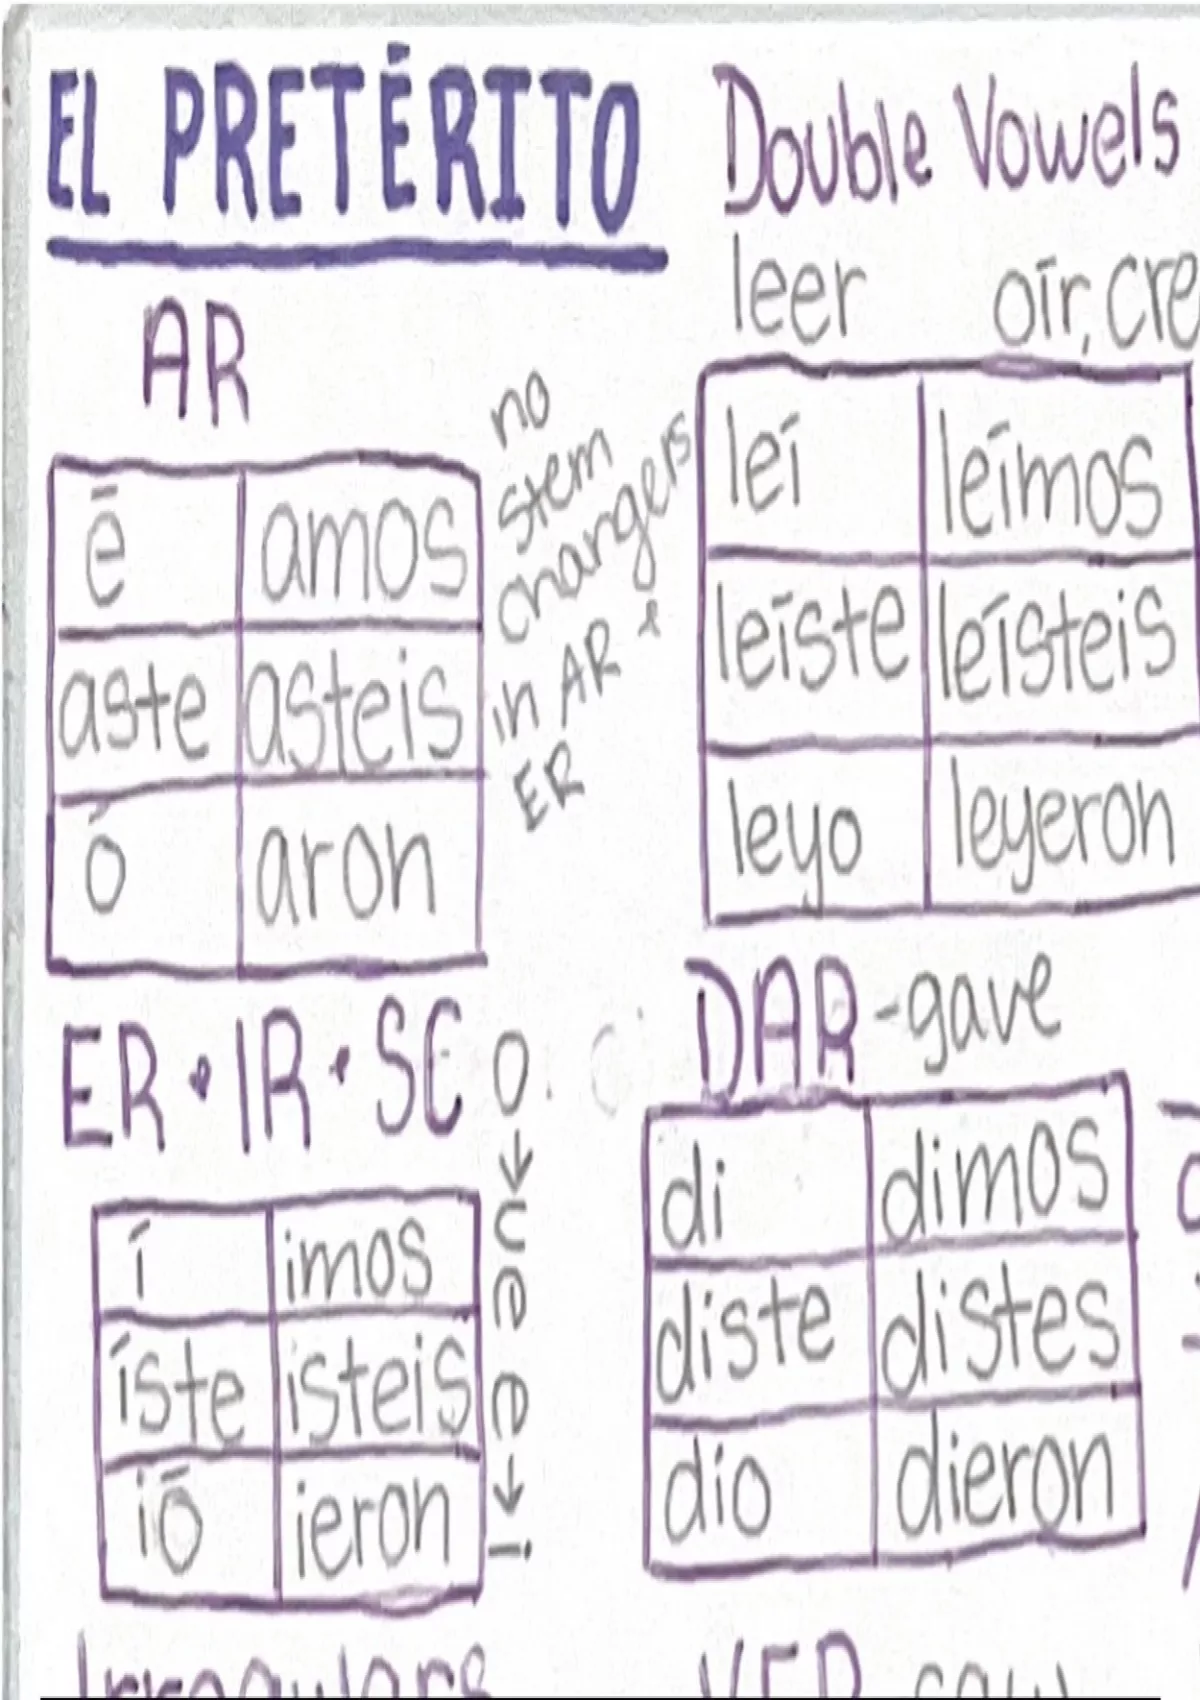 EL PRETÉRITO
AR
é amos
aste asteis
ó aron
no
stem
changers
in AR +
ER
ER · IR · SC
í imos
íste isteis
ió ieron
Double Vowels
leer oír, cre
leí leímos
leíste leísteis
leyo leyeron
DAR - gave
di dimos
diste distes
dio dieron
Irregulars
VER saw